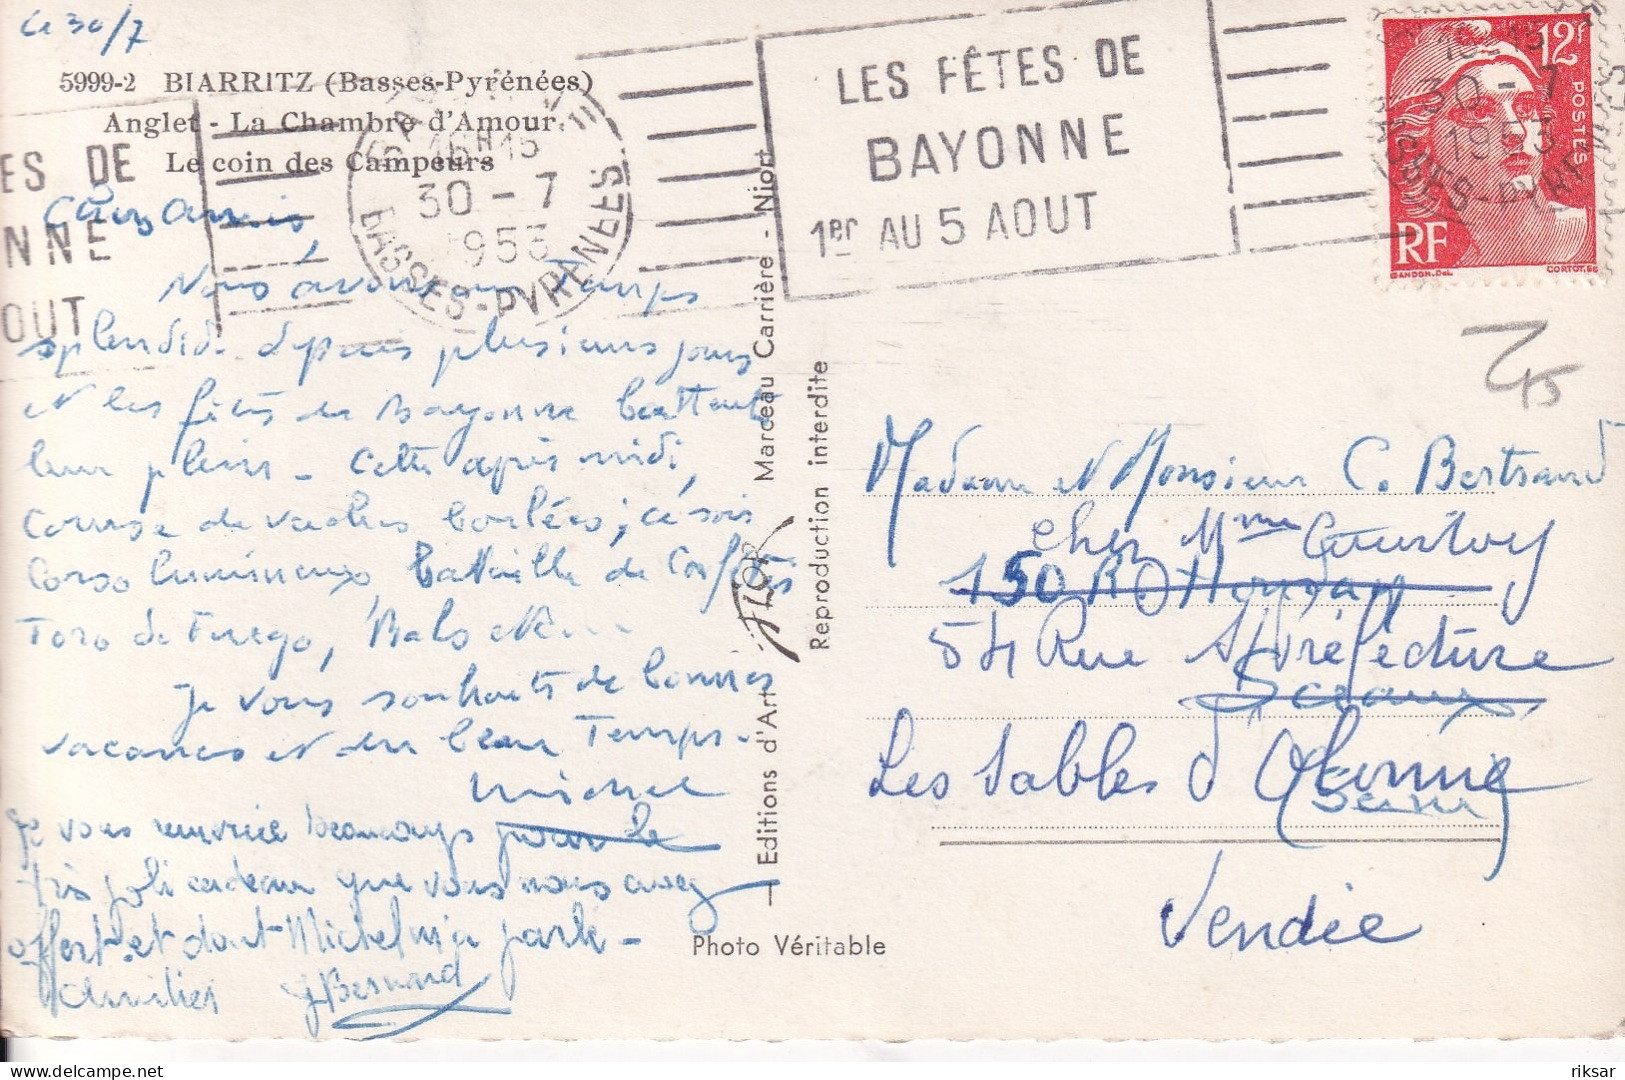 Le 30/7
5999-2 BIARRITZ (Basses-Pyrénées)
Anglet - La Chambre d'Amour
Le coin des Campeurs
ES DE
NNE
OUT
16H15
30 - 7
1953
BASSES-PYRENEES
LES FÊTES DE
BAYONNE
1er AU 5 AOUT
12F
POSTES
RF
GANDON.DEL
CORTOT.SC
30 - 7
1953
BASSES-PYRENEES
Chers Amis,
Nous avons un temps
splendide depuis plusieurs jours
et les fêtes de Bayonne battent
leur plein - Cette après midi,
Course de vaches landaises; ce soir
Corso lumineux, bataille de Confettis
Toro de Fuego, Bals etc
Je vous souhaite de bonnes
vacances et du beau Temps -
Michel
Je vous remercie beaucoup pour le
très joli cadeau que vous nous avez
offert et dont Michel m'a parlé -
Amitiés J Bernard
Editions d'Art FLOR Marceau Carrière - Niort
Reproduction interdite
Photo Véritable
T 15
Madame et Monsieur C. Bertrand
chez Mme
150 R
54 Rue S/Préfecture
Sceaux
Les Sables d'Olonne
(Seine)
Vendée
riksar